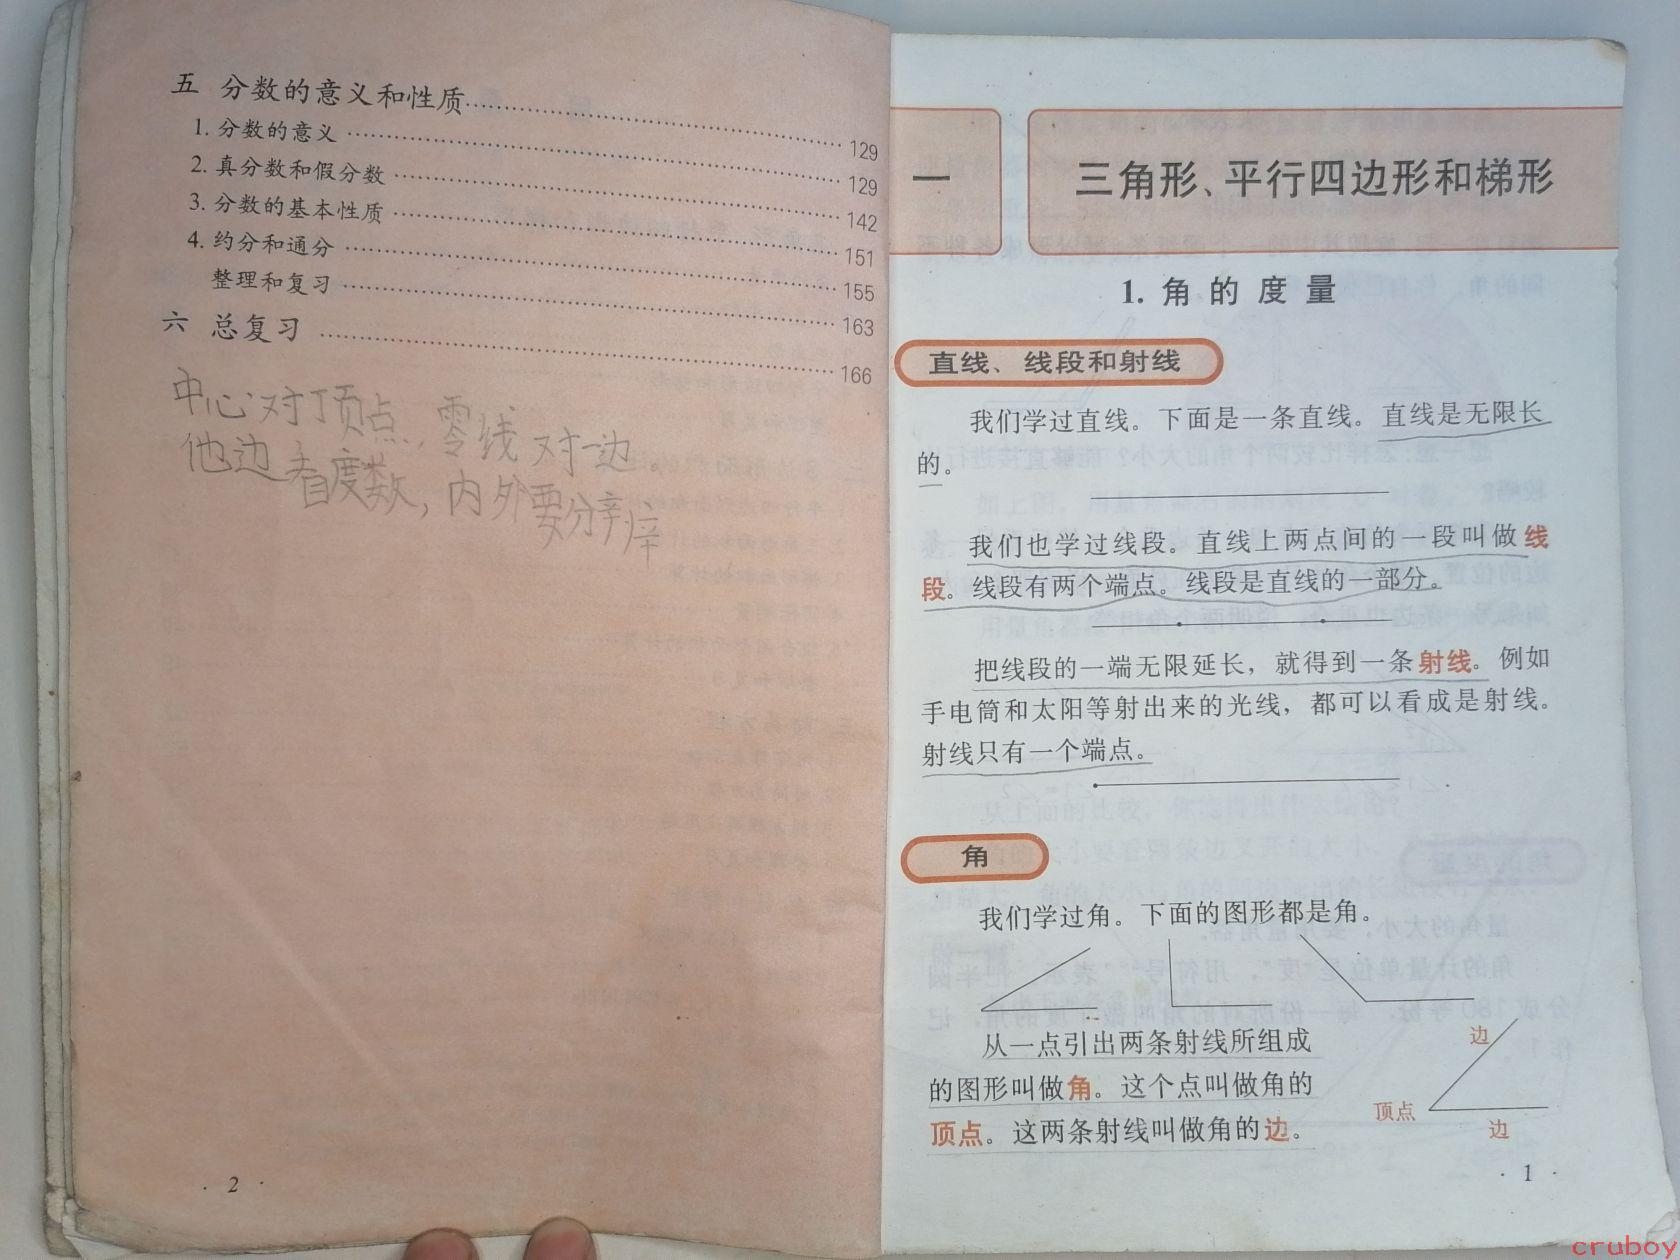 五 分数的意义和性质 129
1. 分数的意义 129
2. 真分数和假分数 142
3. 分数的基本性质 151
4. 约分和通分 155
整理和复习 163
六 总复习 166
中心对顶点,零线对一边。
他边看度数,内外要分辨
· 2 ·
一 三角形、平行四边形和梯形
1. 角的度量
直线、线段和射线
我们学过直线。下面是一条直线。直线是无限长
的。
我们也学过线段。直线上两点间的一段叫做线
段。线段有两个端点。线段是直线的一部分。
把线段的一端无限延长,就得到一条射线。例如
手电筒和太阳等射出来的光线,都可以看成是射线。
射线只有一个端点。
角
我们学过角。下面的图形都是角。
从一点引出两条射线所组成
的图形叫做角。这个点叫做角的
顶点。这两条射线叫做角的边。
边
顶点
边
· 1 ·
cruboy